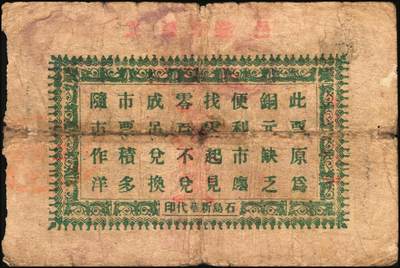 此票原為
銅元缺乏
便利市廛
找起見
零不兌
成兌換
市票積多
隨市作洋
石島新華代印